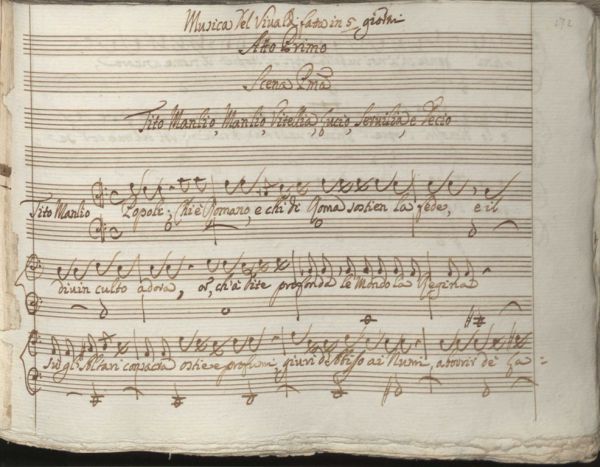 Musica del Vivaldi fatta in 5 giorni
172
Atto Primo
Scena Pma
Tito Manlio, Manlio, Vitellia, Lucio, Servilia, e Decio
Tito Manlio Popoli; Chi è Romano, e chi di Roma sostien la fede, e il
divin culto adora, or, ch'à Lite profonda le Mondo la Regina
su gl'Altari consacra ostie e profumi, giuri de Stiso ai Numi, abborrir de La: